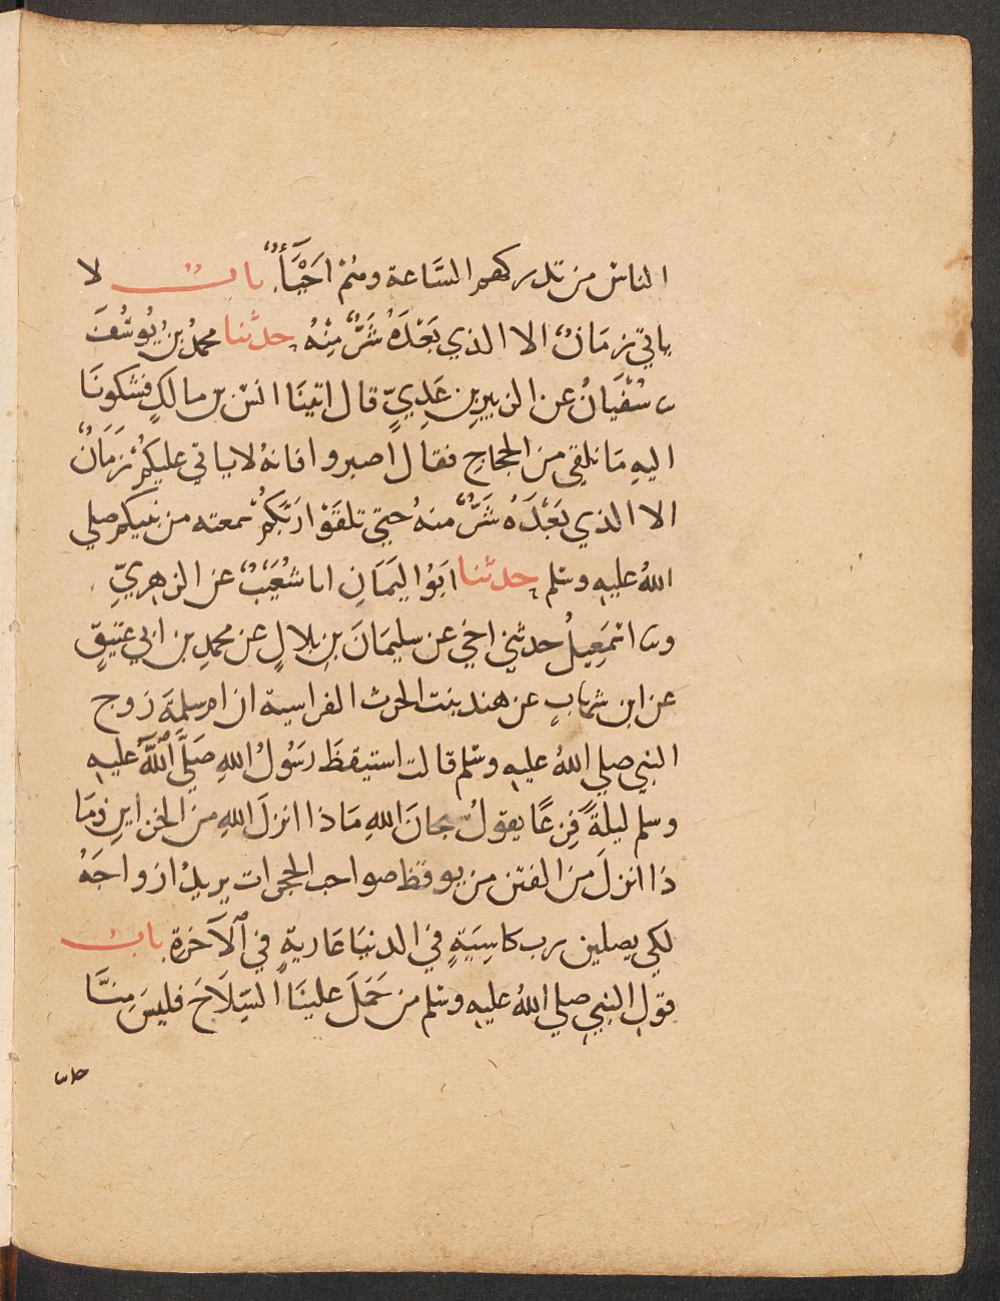 الناس من تدركهم الساعة وهُمْ اَحْيَآءٌ باب لا
ياتي زمَانٌ الا الذي بَعْدَهُ شَرٌّ مِنْهُ حدثنا محمدُ بنُ يُوسُفَ
ثنا سُفْيَانُ عن الزبيرِ بنِ عَدِيٍّ قال اتينَا انسَ بن مالكٍ فشكونَا
اليهِ مَا نلقي منَ الحجاجِ فقال اصبروا فانهُ لا ياتي عليكُمْ زَمَانٌ
الا الذي بَعْدَهُ شَرٌّ منهُ حتي تلقَوْا رَبَّكُمْ سمعته من نبيكم صلي
اللهُ عليهِ وسلم حدثنا ابَوُ اليَمَانِ انا شُعَيْبٌ عن الزهريِّ
وثنا اسْمَعِيلُ حدثني اخي عن سليمَانَ بنِ بلالٍ عن محمدِ بن ابي عتيقٍ
عن ابن شهابٍ عن هند بنت الحرث الفراسية ان ام سلمةَ زوج
النبي صلي اللهُ عليهِ وسلم قالت استيقظَ رسَوُلُ اللهِ صَلَّي اللَّهُ عليهِ
وسلم ليلةً فَزِعًا يقولُ سبحانَ اللهِ مَاذا انزلَ اللهِ منَ الخزاينِ ومَا
ذا انزلَ منَ الفتن من يوقظ صواحب الحجرات يريدُ ازواجَهُ
لكي يصلين رب كاسِيَةٍ في الدنيَا عَاريةٍ في الآخرةِ باب
قولِ النبيِ صلي اللهُ عليهِ وسلم من حَمَلَ علينَا السِّلَاحَ فليسَ مِنَّا
حدثنا